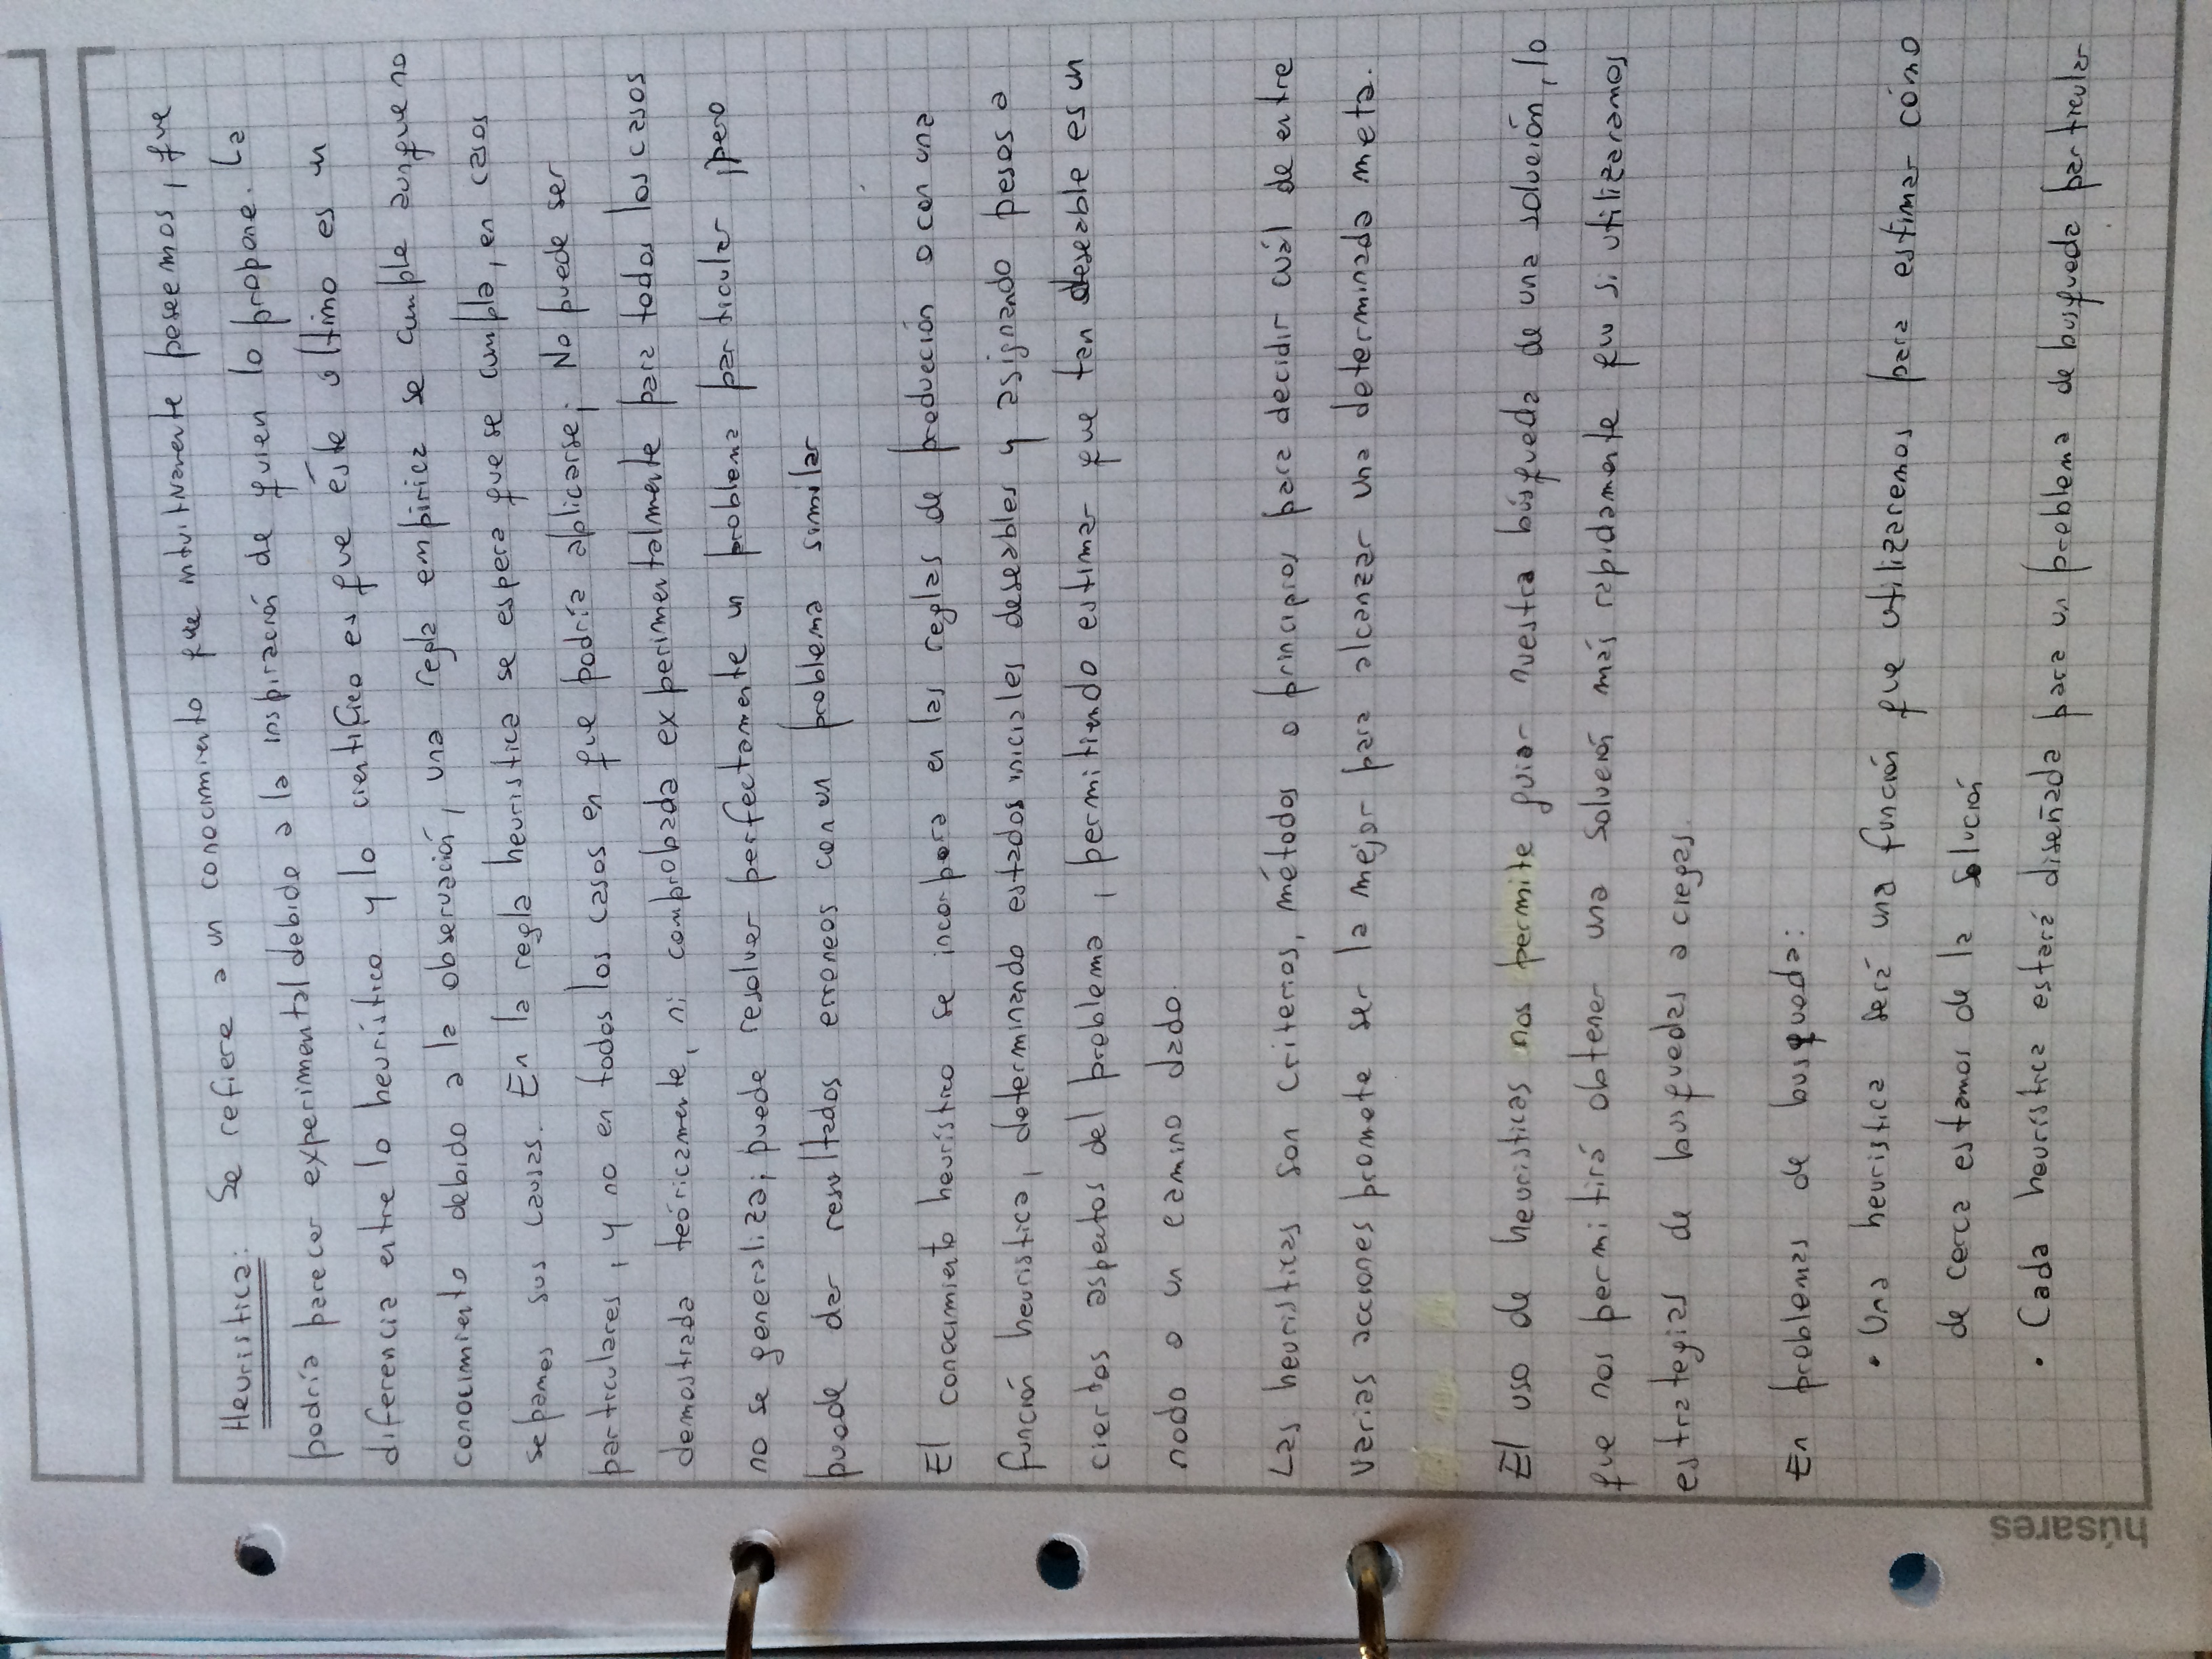 Heuristica: Se refiere a un conocimiento que intuitivamente poseemos, que
podría parecer experimental debido a la inspiración de quien lo propone. La
diferencia entre lo heurístico y lo científico es que éste último es un
conocimiento debido a la observación, una regla empirica se cumple aunque no
sepamos sus causas. En la regla heuristica se espera que se cumpla, en casos
particulares, y no en todos los casos en que podría aplicarse; No puede ser
demostrada teóricamente, ni comprobada experimentalmente para todos los casos
no se generaliza; puede resolver perfectamente un problema particular, pero
puede dar resultados erroneos con un problema similar
El conocimiento heurístico se incorpora en las reglas de producción o con una
función heuristica, determinando estados iniciales deseables y asignando pesos a
ciertos aspectos del problema, permitiendo estimar que tan deseable es un
nodo o un camino dado.
Las heuristicas son criterios, métodos o principios para decidir cuál de entre
varias acciones promete ser la mejor para alcanzar una determinada meta.
El uso de heuristicas nos permite guiar nuestra búsqueda de una solución, lo
que nos permitirá obtener una solución más rapidamente que si utilizaramos
estrategias de busquedas a ciegas.
En problemas de busqueda:
• Una heuristica será una función que utilizaremos para estimar cómo
de cerca estamos de la solución
• Cada heurística estará diseñada para un problema de busqueda particular
húsares